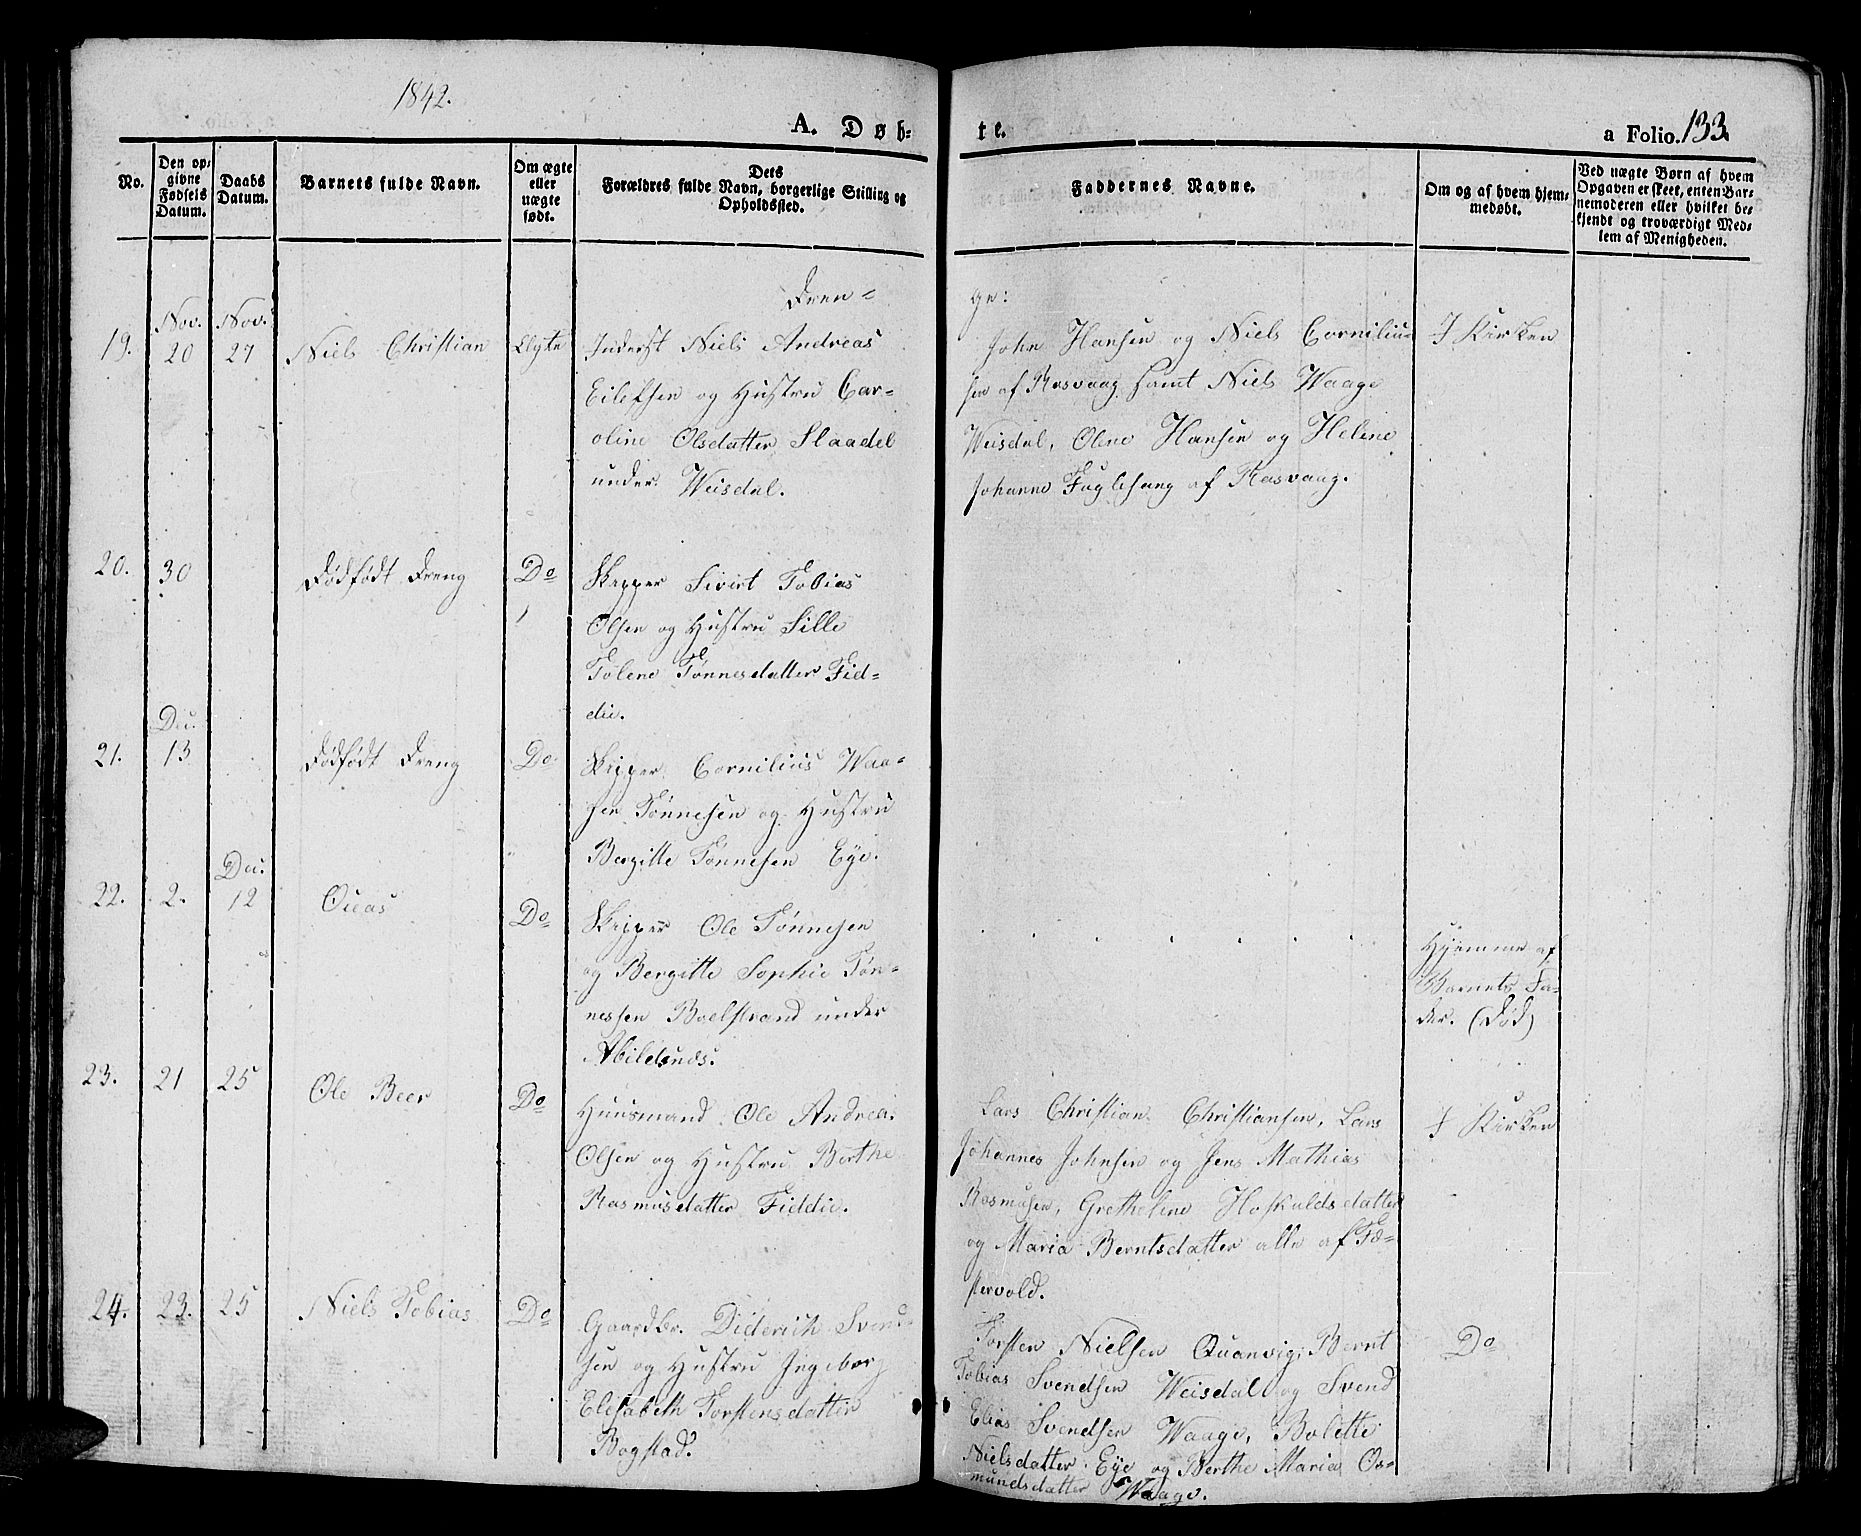 1842.
A. Døb=
te.
a Folio. 133.
No.
Den op=
givne
Fødsels
Datum.
Daabs
Datum.
Barnets fulde Navn.
Om ægte
eller
uægte
født.
Dets
Forældres fulde Navn, borgerlige Stilling og
Opholdssted.
Faddernes Navne.
Om og af hvem hjem=
medøbt.
Ved uægte Børn af hvem
Opgaven er skeet, enten Bar=
nemoderen eller hvilket be=
kjendt og troværdigt Med=
lem af Menigheden.
Dren=
ge:
19.
Nov.
20
Nov.
27
Niels Christian
Ægte
Inderst Niels Andreas
Eilefsen og Hustru Car=
oline Olsdatter Slaadel
under Weisdal.
John Hansen og Niels Corniliu=
sen af Rasvaag samt Niels Waage
Weisdal, Olene Hansen og Helene
Johanne Fuglesang af Rasvaag.
I Kirken
20.
30
Dødfødt Dreng
Do
Skipper Sivert Tobias
Olsen og Hustru Sille
Tolene Tønnesdatter Fid=
die.
21.
Dec.
13
Dødfødt Dreng
Do
Skipper Cornilius Waa=
sen Tønnesen og Hustru
Bergitte Tønnesen Eye.
22.
2.
Dec.
12
Do
Skipper Ole Tønnesen
og Bergitte Sophie Tøn=
nessen Boelstrand under
Abildsnæs.
Hjemme af
Barnets Fa=
der. (Død)
23.
21
25
Ole Beer
Do
Huusmand Ole Andreas
Olsen og Hustru Berthe
Rasmusdatter Fiddie.
Lars Christian Christiansen, Lars
Johannes Johnsen og Jens Mathias
Rasmusen, Grethelene Hoskuldsdatter
og Maria Berntsdatter alle af Fæ=
stervold.
I Kirken
24.
23.
25
Niels Tobias
Do
Gaardbr. Diderich Svend=
sen og Hustru Ingeborg
Elisabeth Torstensdatter
Bogstad.
Torsten Nielsen Quanvig, Bernt
Tobias Svendsen Weisdal og Svend
Elias Svendsen Waage, Bolette
Nielsdatter Eye og Berthe Maria Os=
mundsdatter Waage.
Do